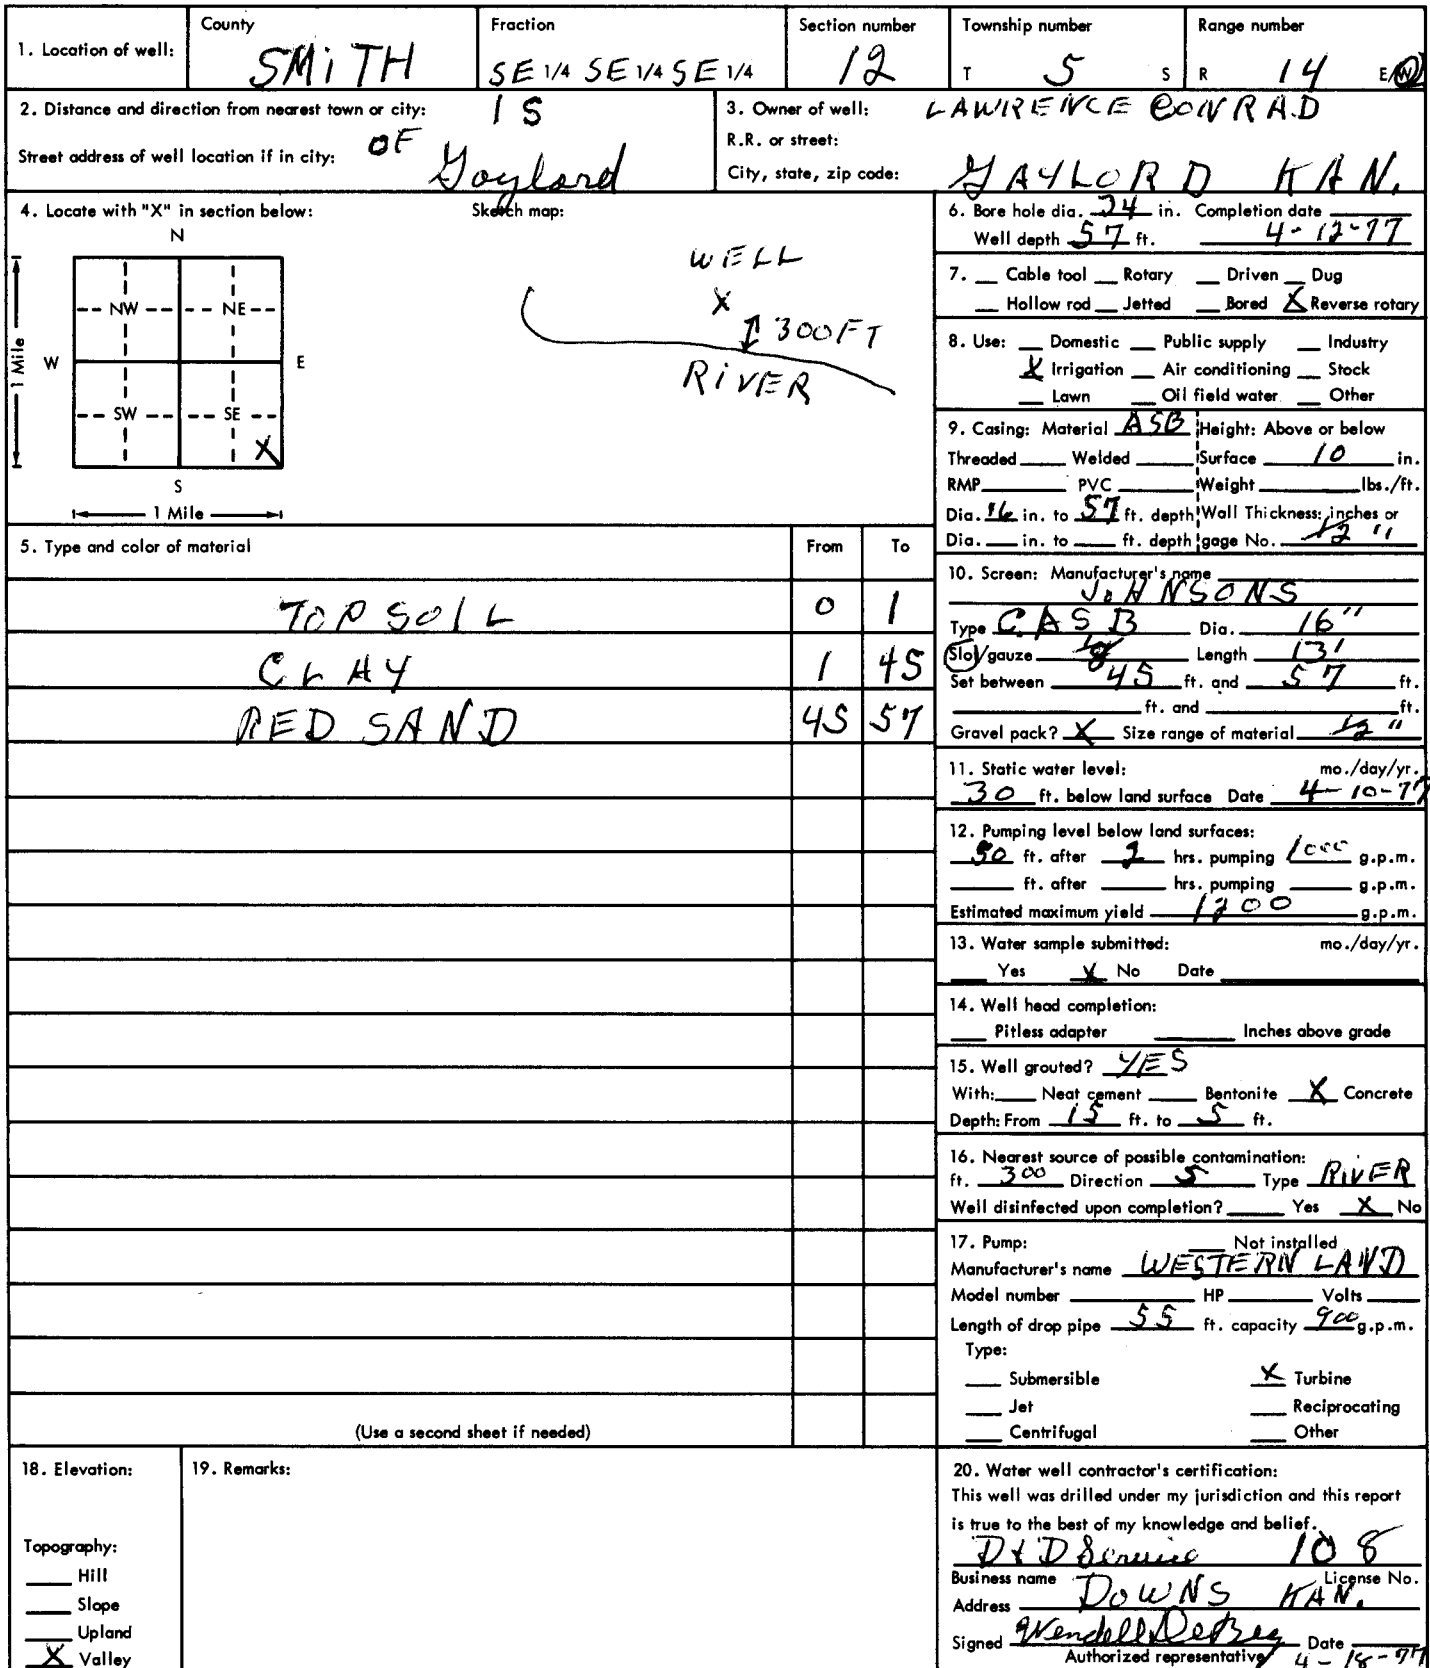 1. Location of well: County SMiTH Fraction SE 1/4 SE 1/4 SE 1/4 Section number 12 Township number T 5 S Range number R 14 E/W
2. Distance and direction from nearest town or city: 1 S
OF Gaylord
Street address of well location if in city:
3. Owner of well: LAWRENCE CONRAD
R.R. or street:
City, state, zip code: GAYLORD KAN.
4. Locate with "X" in section below:
N
NW NE
W E
SW SE
X
S
1 Mile
1 Mile
Sketch map:
WELL
X
300FT
RiVER
5. Type and color of material From To
TOPSOIL 0 1
CLAY 1 45
RED SAND 45 57
(Use a second sheet if needed)
6. Bore hole dia. 24 in. Completion date
Well depth 57 ft. 4-12-77
7. Cable tool Rotary Driven Dug
Hollow rod Jetted Bored X Reverse rotary
8. Use: Domestic Public supply Industry
X Irrigation Air conditioning Stock
Lawn Oil field water Other
9. Casing: Material ASB Height: Above or below
Threaded Welded Surface 10 in.
RMP PVC Weight lbs./ft.
Dia. 16 in. to 57 ft. depth Wall Thickness: inches or
Dia. in. to ft. depth gage No. 1/2 "
10. Screen: Manufacturer's name
JOHNSONS
Type C.ASB Dia. 16"
Slot/gauze 1/8 Length 13'
Set between 45 ft. and 57 ft.
ft. and ft.
Gravel pack? X Size range of material 1/2 "
11. Static water level: mo./day/yr.
30 ft. below land surface Date 4-10-77
12. Pumping level below land surfaces:
50 ft. after 2 hrs. pumping 1000 g.p.m.
ft. after hrs. pumping g.p.m.
Estimated maximum yield 1200 g.p.m.
13. Water sample submitted: mo./day/yr.
Yes X No Date
14. Well head completion:
Pitless adapter Inches above grade
15. Well grouted? YES
With: Neat cement Bentonite X Concrete
Depth: From 15 ft. to 5 ft.
16. Nearest source of possible contamination:
ft. 300 Direction S Type RiVER
Well disinfected upon completion? Yes X No
17. Pump: Not installed
Manufacturer's name WESTERN LAND
Model number HP Volts
Length of drop pipe 55 ft. capacity 900 g.p.m.
Type:
Submersible X Turbine
Jet Reciprocating
Centrifugal Other
18. Elevation:
Topography:
Hill
Slope
Upland
X Valley
19. Remarks:
20. Water well contractor's certification:
This well was drilled under my jurisdiction and this report
is true to the best of my knowledge and belief.
D & D Service 108
Business name License No.
Address DOWNS KAN.
Signed Wendell Date
Authorized representative 4-18-77